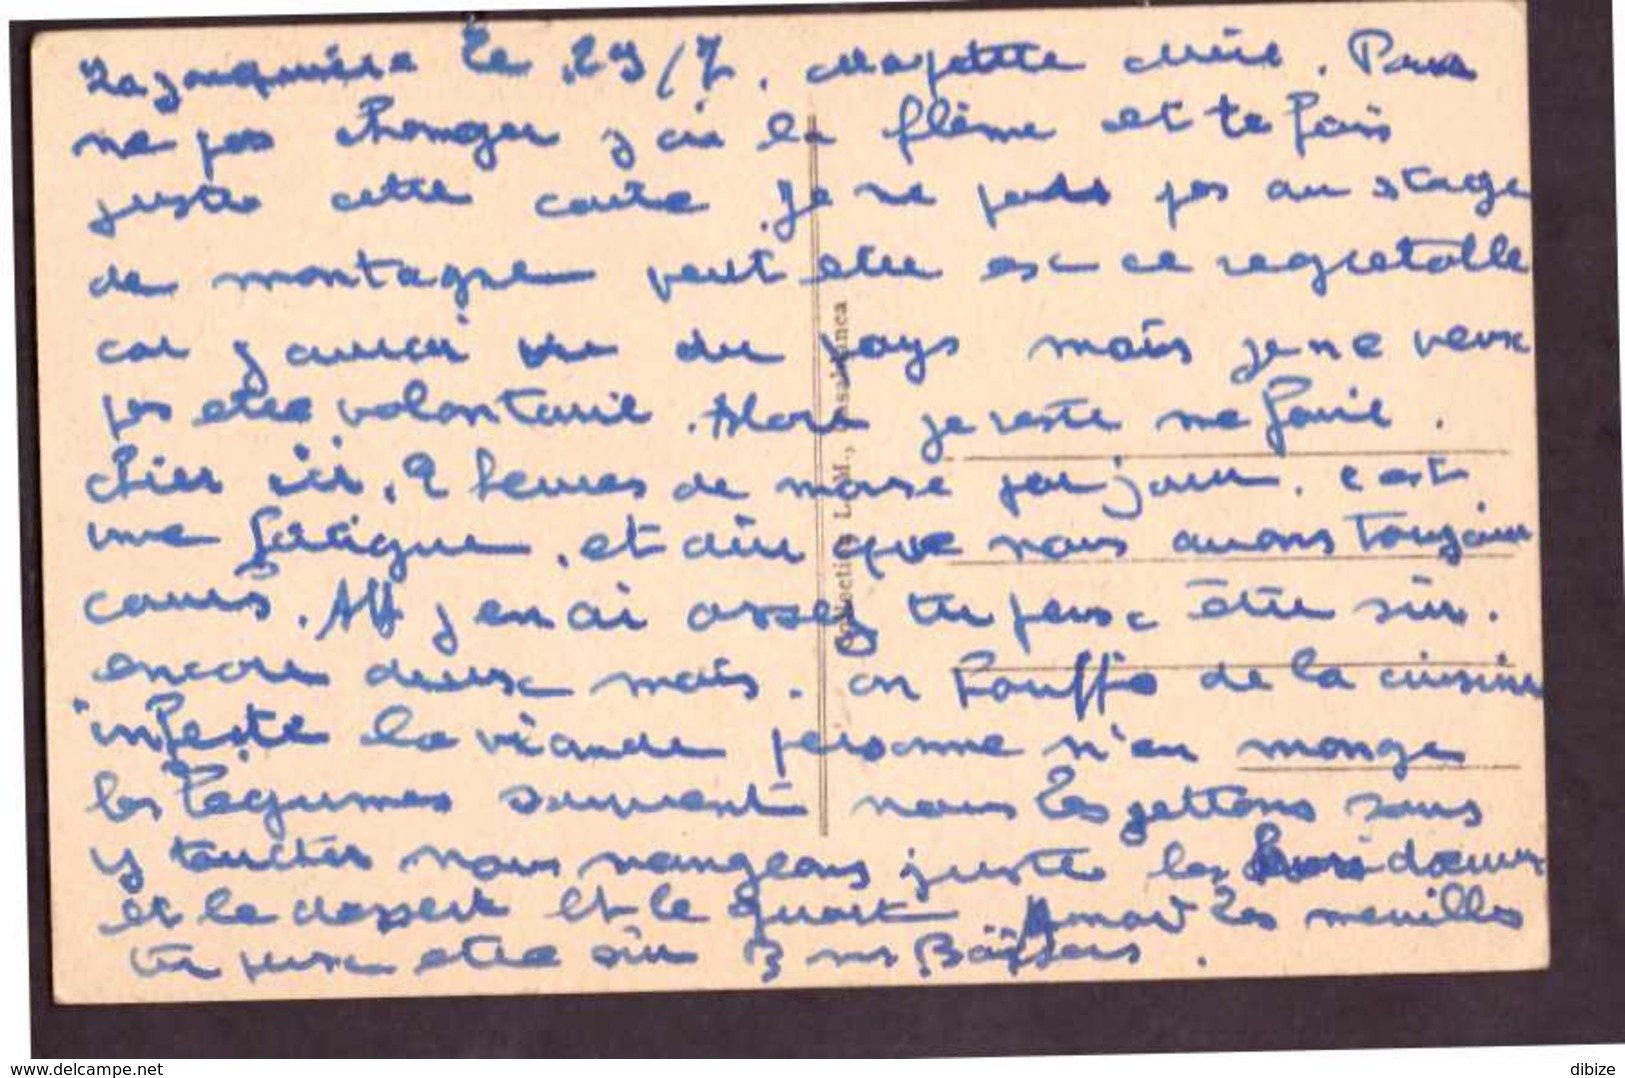 La Jonquière le 29/7. Ma petite Mère. Pour
ne pas changer j'ai la flème et te fais
juste cette carte. Je ne pas au stage
de montagne peut etre es ce regretable
car j'aurai vu du pays mais je ne veux
pas etre volontaire. Alors je reste me faire.
chier ici. 2 heures de morse par jour. c'est
une fatigue. et dire que nous avons toujour
cours. Aff j'en ai assez tu peux être sûr.
encore deux mois. on bouffe de la cuisine
infecte la viande personne n'en mange
les légumes souvent nous les jettons sans
y toucher nous mangeons juste les hors d'oeuvres
et le dessert et le quart
tu peux etre sûr Baisers.
Collection L. M., Casablanca
delcampe.net
dibize